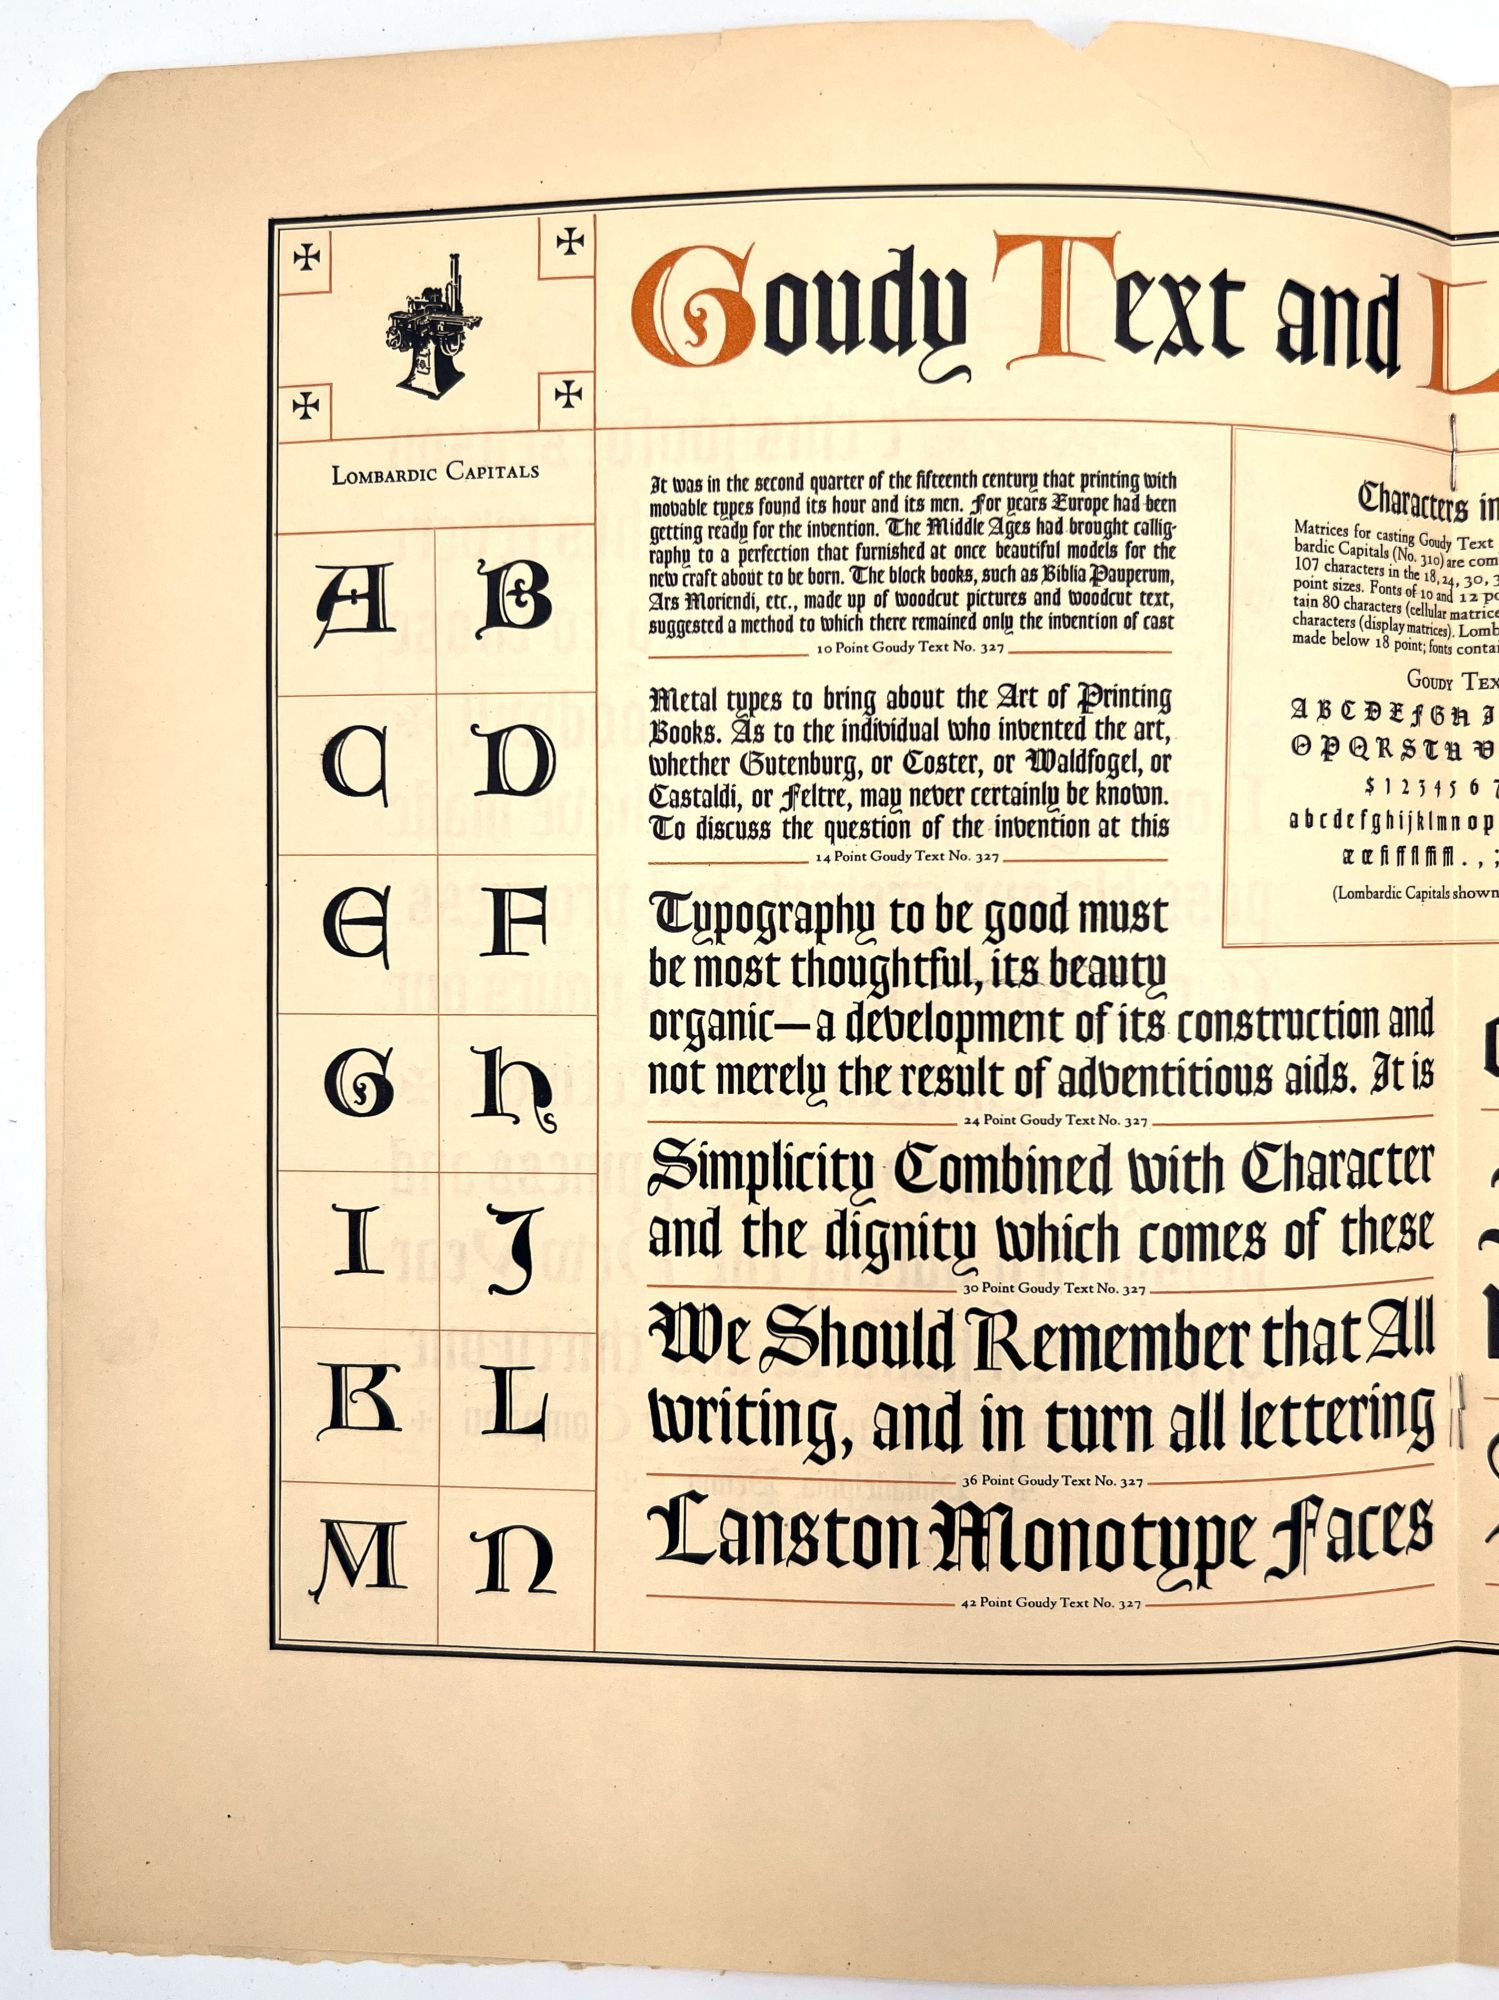 Goudy Text and L
Lombardic Capitals
A B
C D
E F
G H
I J
K L
M N
It was in the second quarter of the fifteenth century that printing with
movable types found its hour and its men. For years Europe had been
getting ready for the invention. The Middle Ages had brought callig-
raphy to a perfection that furnished at once beautiful models for the
new craft about to be born. The block books, such as Biblia Pauperum,
Ars Moriendi, etc., made up of woodcut pictures and woodcut text,
suggested a method to which there remained only the invention of cast
10 Point Goudy Text No. 327
Metal types to bring about the Art of Printing
Books. As to the individual who invented the art,
whether Gutenburg, or Coster, or Waldfogel, or
Castaldi, or Feltre, may never certainly be known.
To discuss the question of the invention at this
14 Point Goudy Text No. 327
Typography to be good must
be most thoughtful, its beauty
organic—a development of its construction and
not merely the result of adventitious aids. It is
24 Point Goudy Text No. 327
Simplicity Combined with Character
and the dignity which comes of these
30 Point Goudy Text No. 327
We Should Remember that All
writing, and in turn all lettering
36 Point Goudy Text No. 327
Lanston Monotype Faces
42 Point Goudy Text No. 327
Characters in
Matrices for casting Goudy Text
bardic Capitals (No. 310) are com
107 characters in the 18, 24, 30, 3
point sizes. Fonts of 10 and 12 po
tain 80 characters (cellular matrice
characters (display matrices). Lomb
made below 18 point; fonts contai
Goudy Tex
A B C D E F G H I
O P Q R S T U V
$ 1 2 3 4 5 6 7
a b c d e f g h i j k l m n o p
æ œ fi ff fl ffi ffl . , ;
(Lombardic Capitals shown